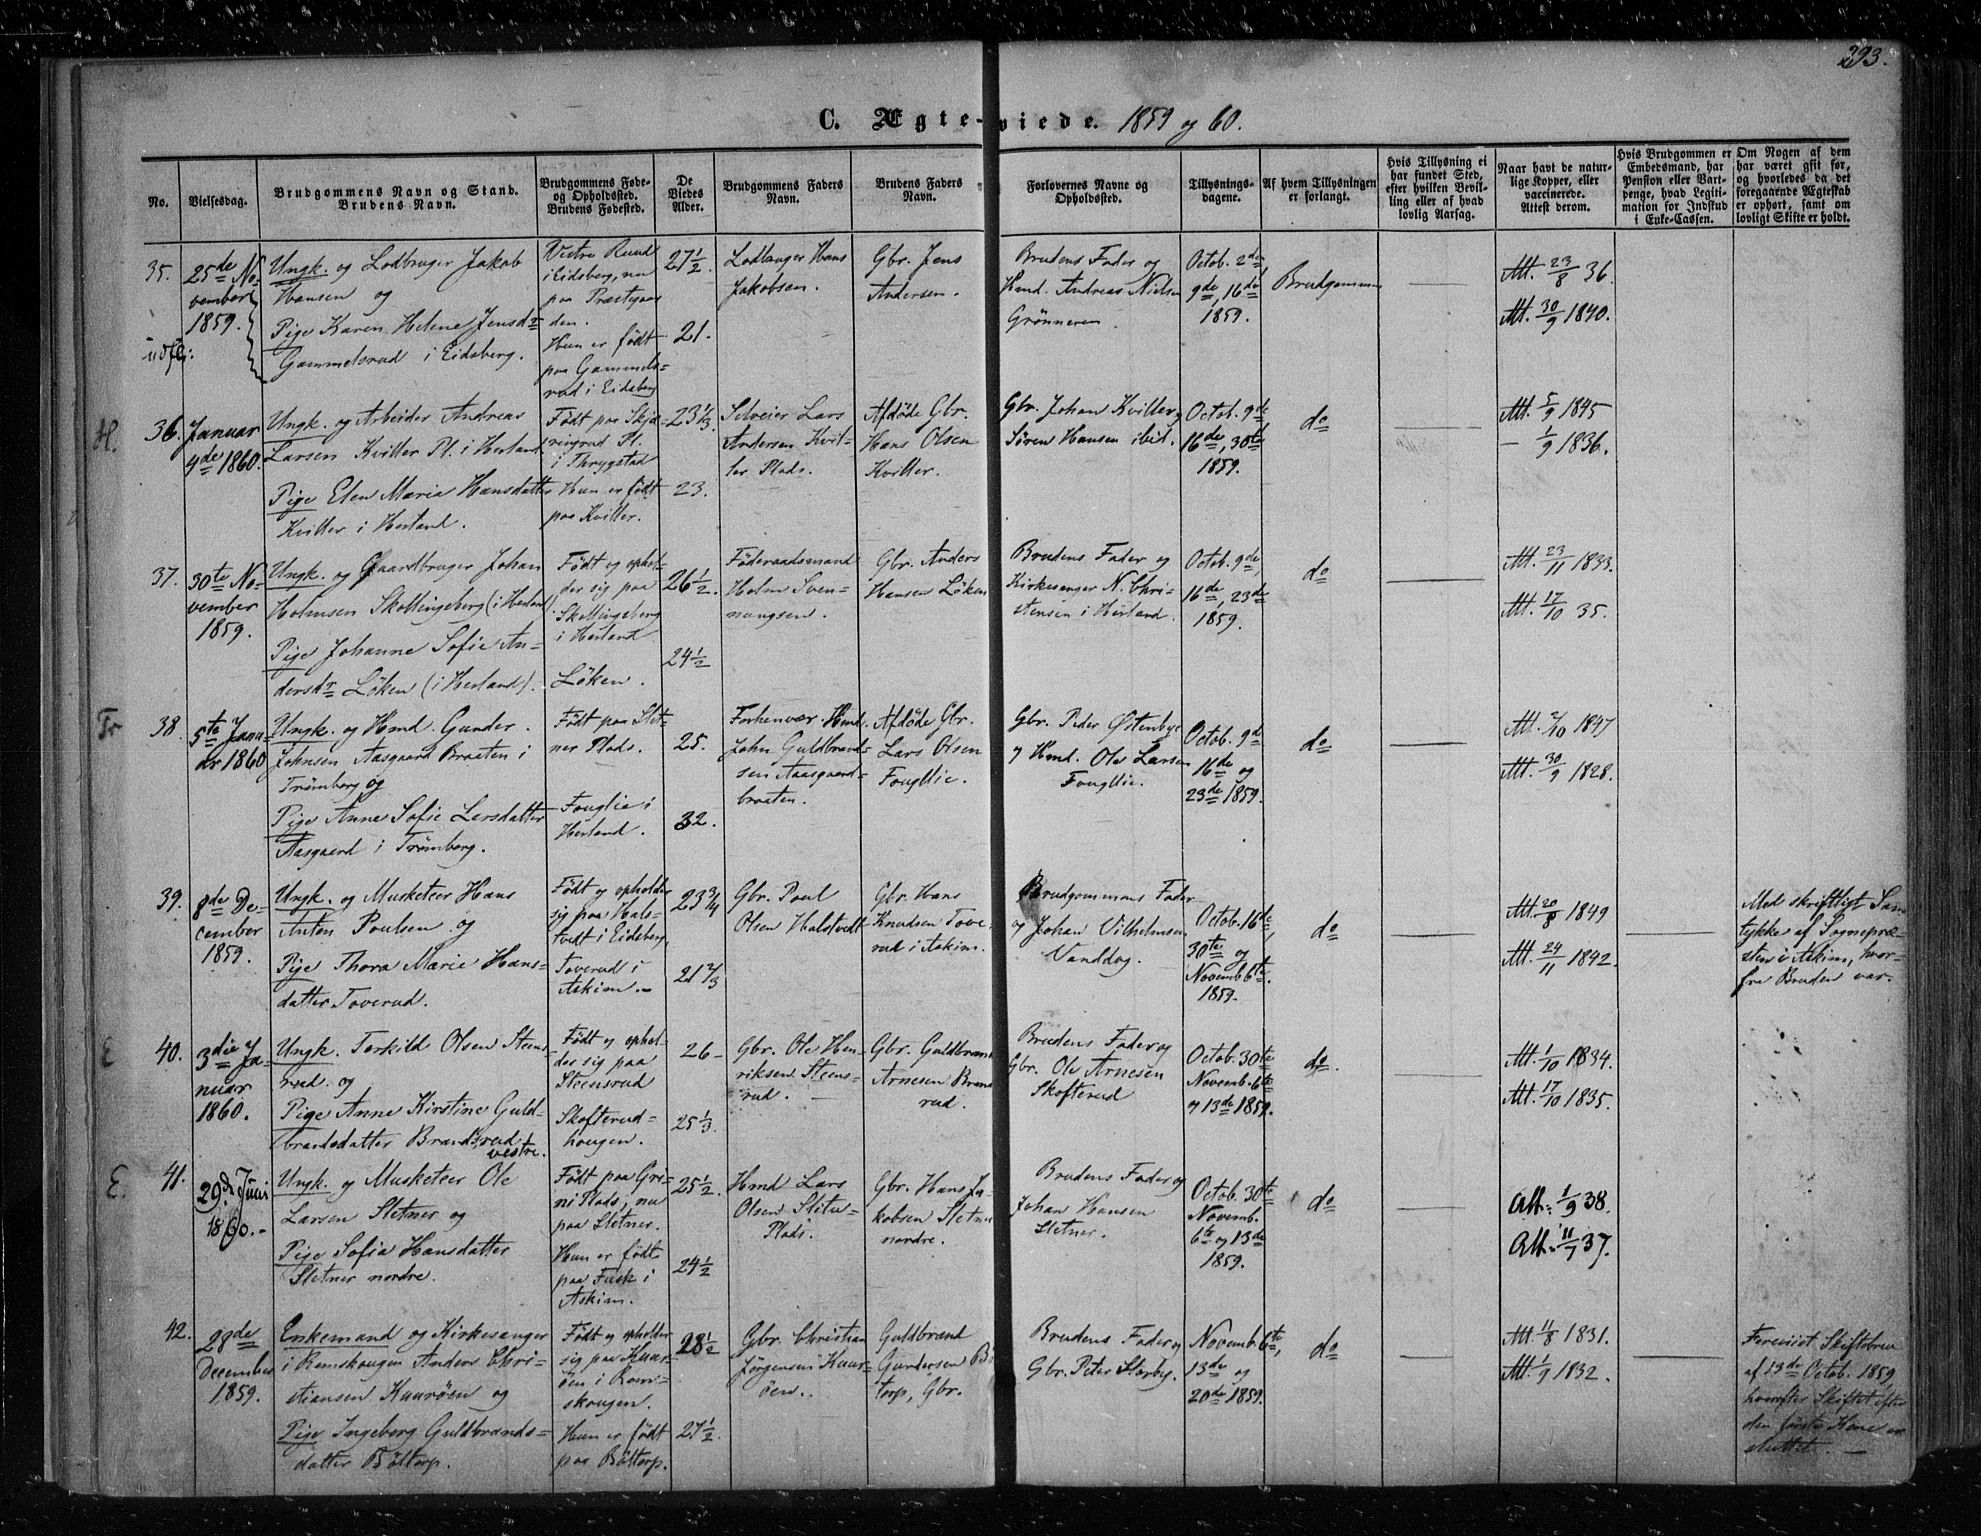 293.
C. Ægte-viede. 1859 og 60.
No.
Vielsesdag.
Brudgommens Navn og Stand.
Brudens Navn.
Brudgommens Føde-
og Opholdssted.
Brudens Fødested.
De
Viedes
Alder.
Brudgommens Faders
Navn.
Brudens Faders
Navn.
Forlovernes Navne og
Opholdssted.
Tillysnings-
dagene.
Af hvem Tillysningen
er forlangt.
Hvis Tillysning ei
har fundet Sted,
efter hvilken Bevil-
ling eller af hvad
lovlig Aarsag.
Naar havt de natur-
lige Kopper, eller
vaccinerede.
Attest derom.
Hvis Brudgommen er
Embedsmand, har
Pension eller Vart-
penge, hvad Legiti-
mation for Indskud
i Enke-Cassen.
Om Nogen af dem
har været gift før,
og hvorledes da det
foregaaende Ægteskab
er ophørt, samt om
lovligt Skifte er holdt.
35.
25de No-
vember
1859.
udfl:
Ungk. og Lodbruger Jakob
Hansen og
Pige Karen Helene Jensdr
Gammelsrud i Eidsberg.
Vestre Ruud
i Eidsberg, nu
paa Præstegaar
den.
Hun er født
paa Gammels-
rud i Eidsberg
27 1/2.
21.
Lodbruger Hans
Jakobsen.
Gbr. Jens
Andersen.
Brudens Fader og
Hmd. Andreas Nielsen
Grønneren.
Octob. 2den
9de, 16de
1859.
Brudgommen
Att. 23/8 36.
Att. 30/9 1840.
H.
36.
Januar
4de 1860.
Ungk. og Arbeider Andreas
Larsen Kviller Pl. i Herland
Pige Elen Maria Hansdatter
Kviller i Herland.
Født paa Skja-
neigrud Pl.
i Thrygstad
Hun er født
paa Kviller.
23 1/3.
23.
Selveier Lars
Andersen Kvil-
ler Plads.
Afdøde Gbr.
Hans Olsen
Kviller.
Gbr. Johan Kviller og
Søren Hansen ibid.
Octob. 9de
16de, 30te
1859.
do
Att. 5/9 1845
— 1/9 1836.
37.
30te No-
vember
1859.
Ungk. og Gaardbruger Johan
Holmsen Skollingeberg (i Herland)
Pige Johanne Sofie An-
dersdr Løken (i Herland).
Født og ophol-
der sig paa
Skollingeberg
i Herland
Løken.
26 1/2.
24 1/2
Føderaadsmand
Holm Sven-
nungsen.
Gbr. Anders
Hansen Løken
Brudens Fader og
Kirkesanger N. Chri-
stensen i Herland.
Octob. 9de,
16de, 23de
1859.
do
Att. 23/11 1833.
Att. 17/10 35.
Tr
38.
5te Janu-
ar 1860
Ungk. og Hmd. Gunder
Johnsen Aasgaard Braaten i
Trømborg og
Pige Anne Sofie Larsdatter
Aasgaard i Trømborg.
Født paa Slet-
ner Plads.
Fouglie i
Herland.
25.
32.
Forhenvær. Hmd.
John Guldbrand-
sen Aasgaard-
braaten.
Afdøde Gbr.
Lars Olsen
Fougllie.
Gbr. Peder Østenbye
og Hmd. Ole Larsen
Fougllie.
Octob. 9de
16de og
23de 1859.
do
Att. 2/10 1847
Att. 30/9 1828.
39.
8de De-
cember
1859.
Ungk. og Musketeer Hans
Anton Poulsen og
Pige Thora Marie Hans-
datter Toverud.
Født og opholder
sig paa Hals-
tvedt i Eidsberg.
Toverud i
Askim.
23 3/4
21 2/3
Gbr. Poul
Olsen Halstvedt
Gbr. Hans
Knudsen Tove-
rud i Askim.
Brudgommens Fader
og Johan Vilhelmsen
Vanddog.
Octob. 16de,
30te og
Novemb. 6te.
1859.
do
Att. 20/8 1849
Att. 24/11 1842.
Med skriftligt Sam
tykke af Sognepræ-
sten i Askim, hvor-
fra Bruden var.
E
40.
3die Ja-
nuar
1860.
Ungk. Torkild Olsen Steens-
rud og
Pige Anne Kirstine Guld-
brandsdatter Brandsrud
vestre.
Født og ophol-
der sig paa
Steensrud
Skofterud-
hougen.
26
25 1/3.
Gbr. Ole Hen-
riksen Steens-
rud.
Gbr. Guldbrand
Arnesen Brans
rud.
Brudens Fader og
Gbr. Ole Arnesen
Skofterud
Octob. 30te
Novemb. 6te
og 13de 1859.
do.
Att. 1/10 1834.
Att. 17/10 1835.
E.
41.
29de Juni
1860.
Ungk. og Musketeer Ole
Larsen Sletner og
Pige Sofia Hansdatter
Sletner nordre.
Født paa Gri-
ni Plads, nu
paa Sletner.
Hun er født
paa Fusk i
Askim.
25 1/2.
24 1/2
Hmd Lars
Olsen Slitu-
Plads.
Gbr. Hans Ja-
kobsen Sletner
nordre.
Brudens Fader og
Johan Hansen
Sletner.
Octob. 30te
Novemb.
6te og 13de
1859.
do
Att: 1/9 38.
Att: 11/7 37.
42.
28de
December
1859.
Enkemand og Kirkesanger
i Remskougen Anders Chri-
stiansen Kuurøen og
Pige Ingeborg Guldbrands-
datter Bøttorp.
Født og opholder
sig paa Kuur-
øen i Rem-
skougen.
Hun er født
paa Bøttorp.
28 1/2
27 1/2.
Gbr. Christian
Jørgensen Kuur-
øen.
Guldbrand
Gundersen Bø
torp, Gbr.
Brudens Fader og
Gbr. Peter Storby.
Novemb. 6te,
13de og
20de 1859.
do
Att. 11/8 1831.
Att. 1/9 1832.
Foreviist Skiftebrev
af 13de Octob. 1859,
hvorefter Skiftet efter
den første Kone er
sluttet.